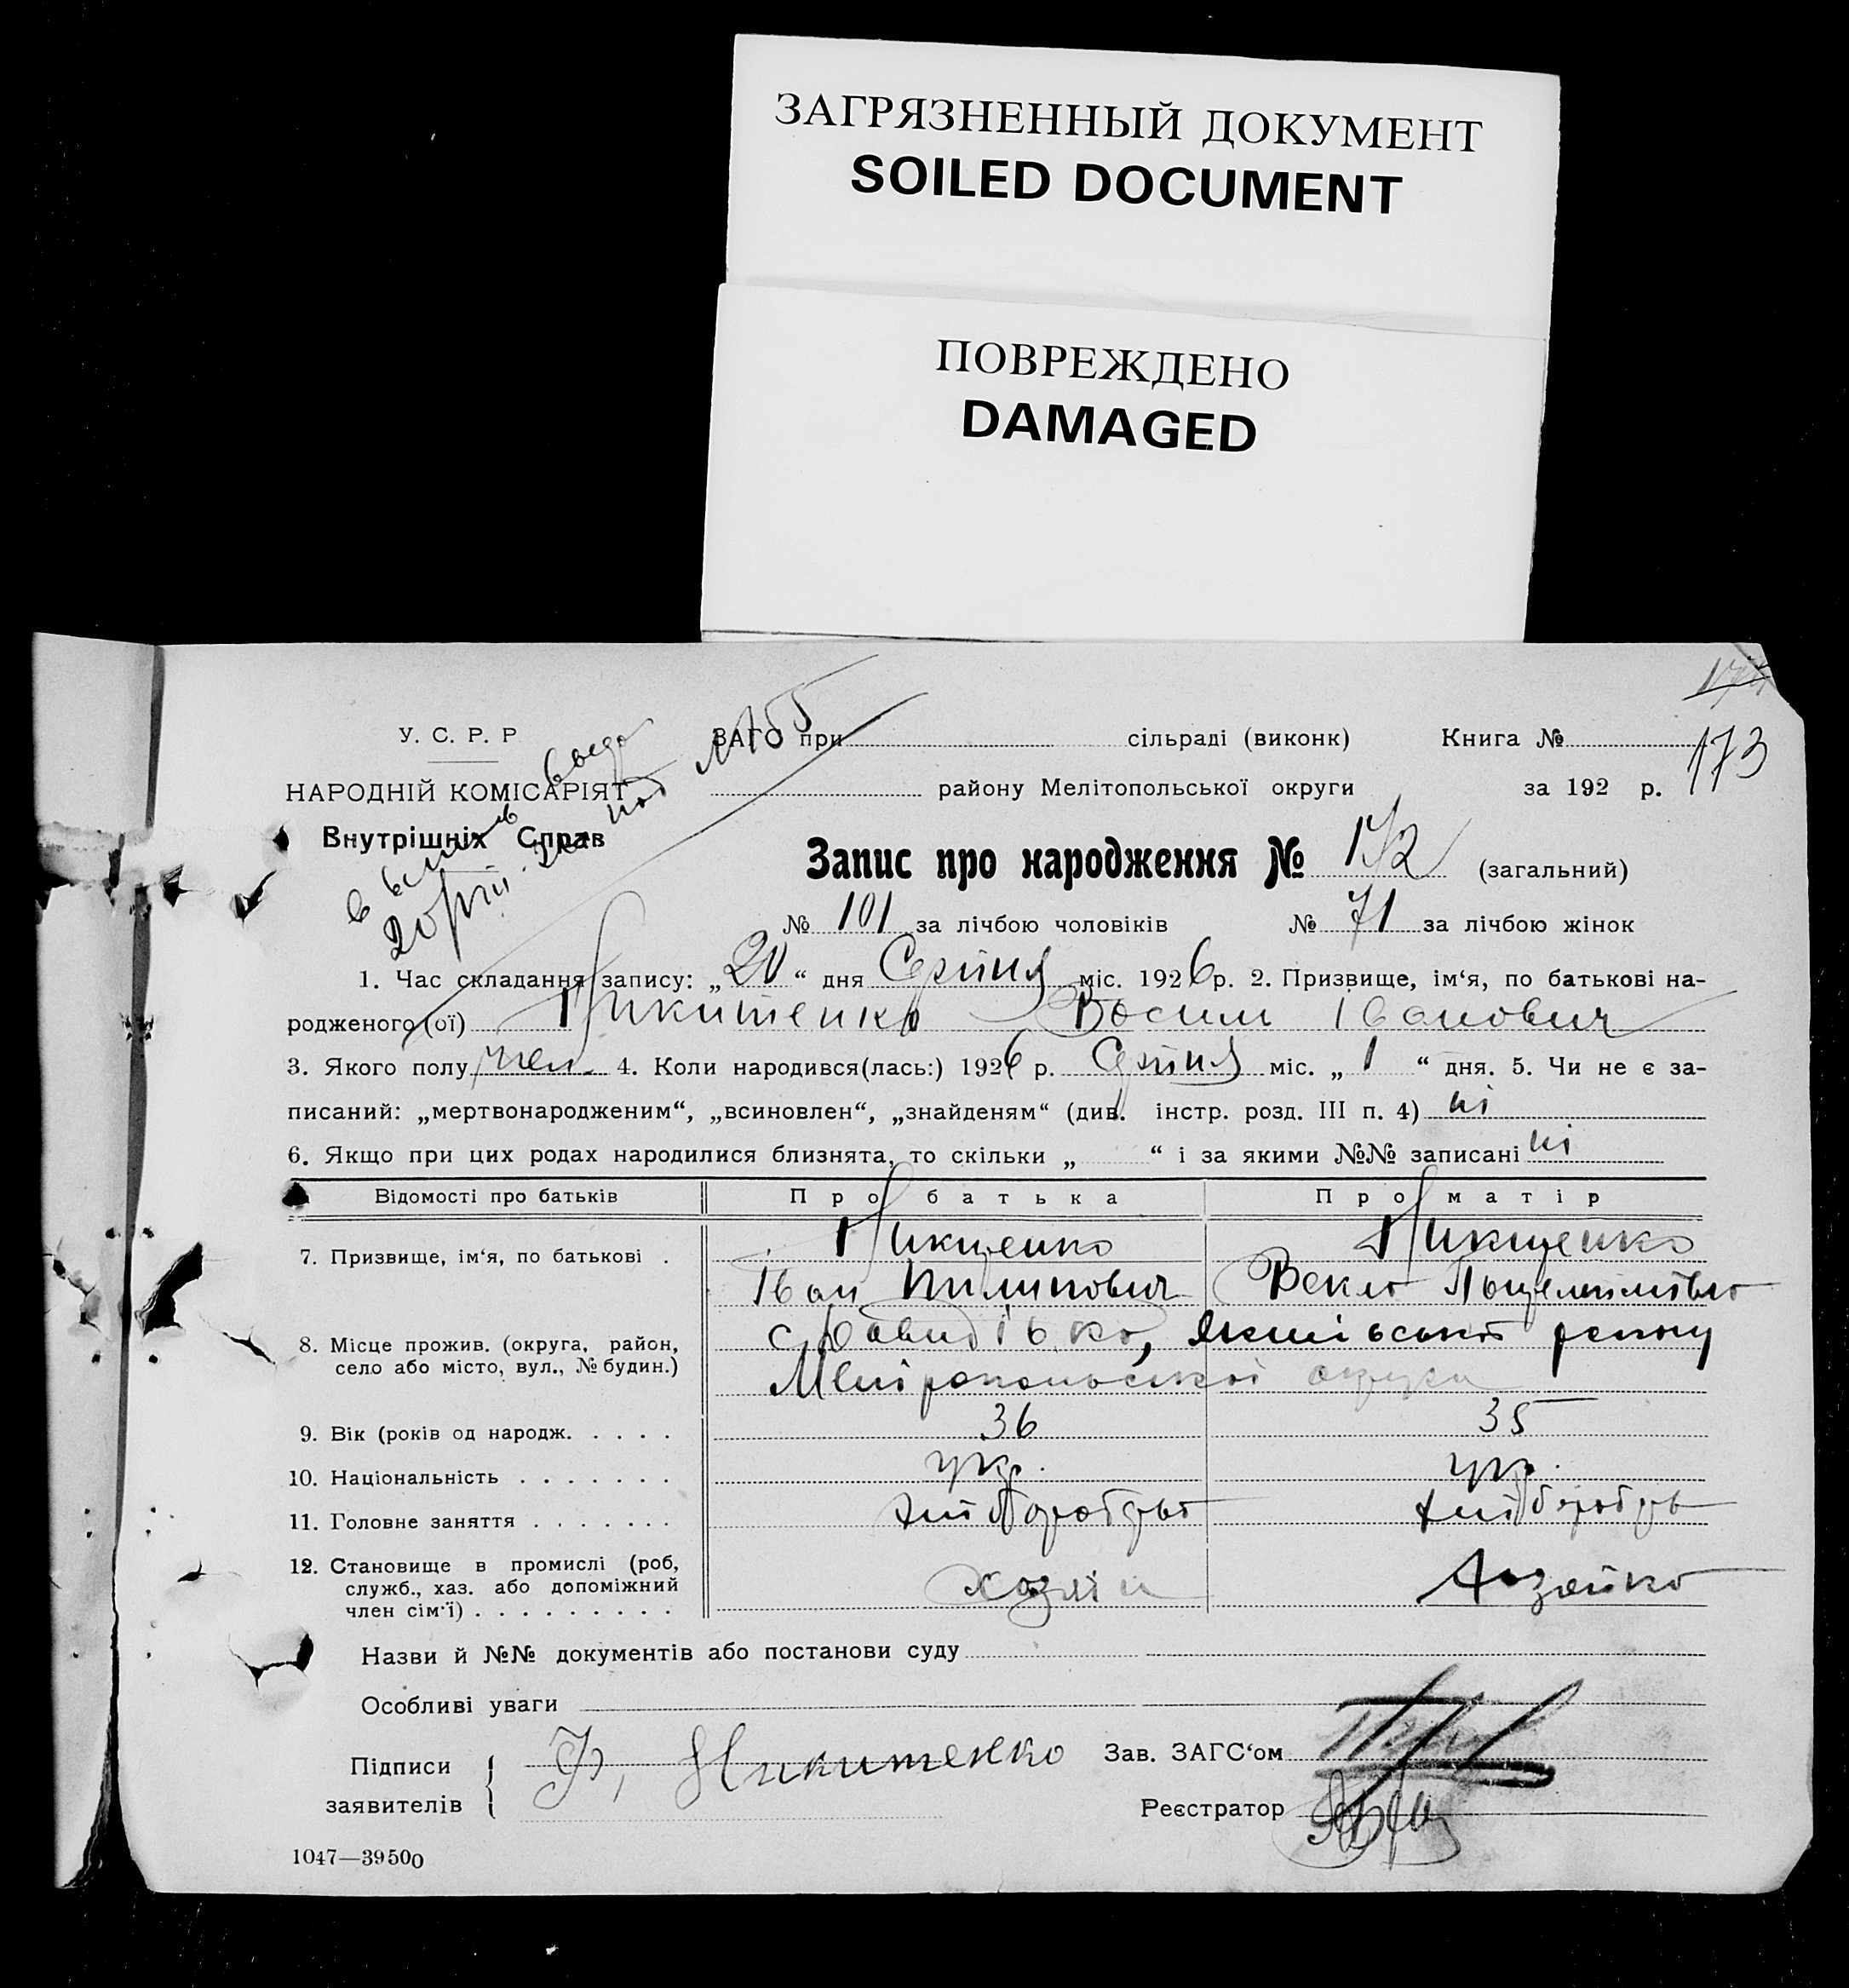 ЗАГРЯЗНЕННЫЙ ДОКУМЕНТ
SOILED DOCUMENT
ПОВРЕЖДЕНО
DAMAGED
173
У. С. Р. Р
ЗАГС при сільраді (виконк) Книга №
НАРОДНІЙ КОМІСАРІЯТ
району Мелітопольської округи за 192 р.
Внутрішніх Справ
Запис про народження № 172 (загальний)
№ 101 за лічбою чоловіків № 71 за лічбою жінок
1. Час складання запису: „20“ дня Серпня міс. 1926 р. 2. Призвище, ім‘я, по батькові на-
родженого (ої) Никитенко Васил Іванович
3. Якого полу чол. 4. Коли народився(лась:) 1926 р. Серпня міс. „1“ дня. 5. Чи не є за-
писаний: „мертвонародженим“, „всиновлен“, „знайденям“ (див. інстр. розд. III п. 4) ні
6. Якщо при цих родах народилися близнята, то скільки „ “ і за якими №№ записані ні
Відомості про батьків Про батька Про матір
7. Призвище, ім‘я, по батькові . Никитенко Никитенко
Іван Пилипович Векла
8. Місце прожив. (округа, район, с. Давидівка, Якимівського району
село або місто, вул., № будин.)
Мелітопольської округи
9. Вік (років од народж. . . . . 36 35
10. Національність . . . . . . . укр. укр.
11. Головне заняття . . . . . . . хліборобство хлібороб
12. Становище в промислі (роб,
служб., хаз. або допоміжний
член сім‘ї) . . . . . . . . . хазяїн хазяйка
Назви й №№ документів або постанови суду
Особливі уваги
Підписи Ф, Никитенко Зав. ЗАГС‘ом
заявителів Реєстратор
1047—39500